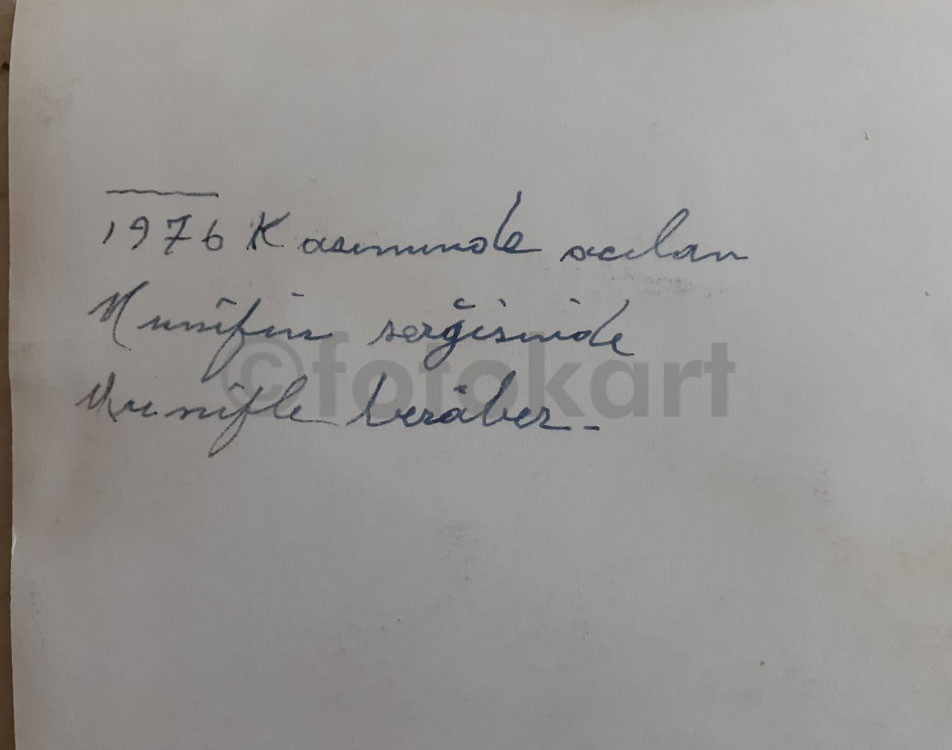 1976 Kasımında acılan
Munîfin serğisinide
Munîfle berâber-
©fotokart